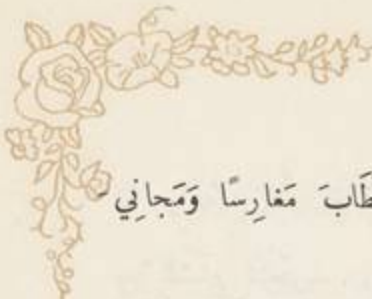 طَابَ مَغارِسًا وَمَجانِي